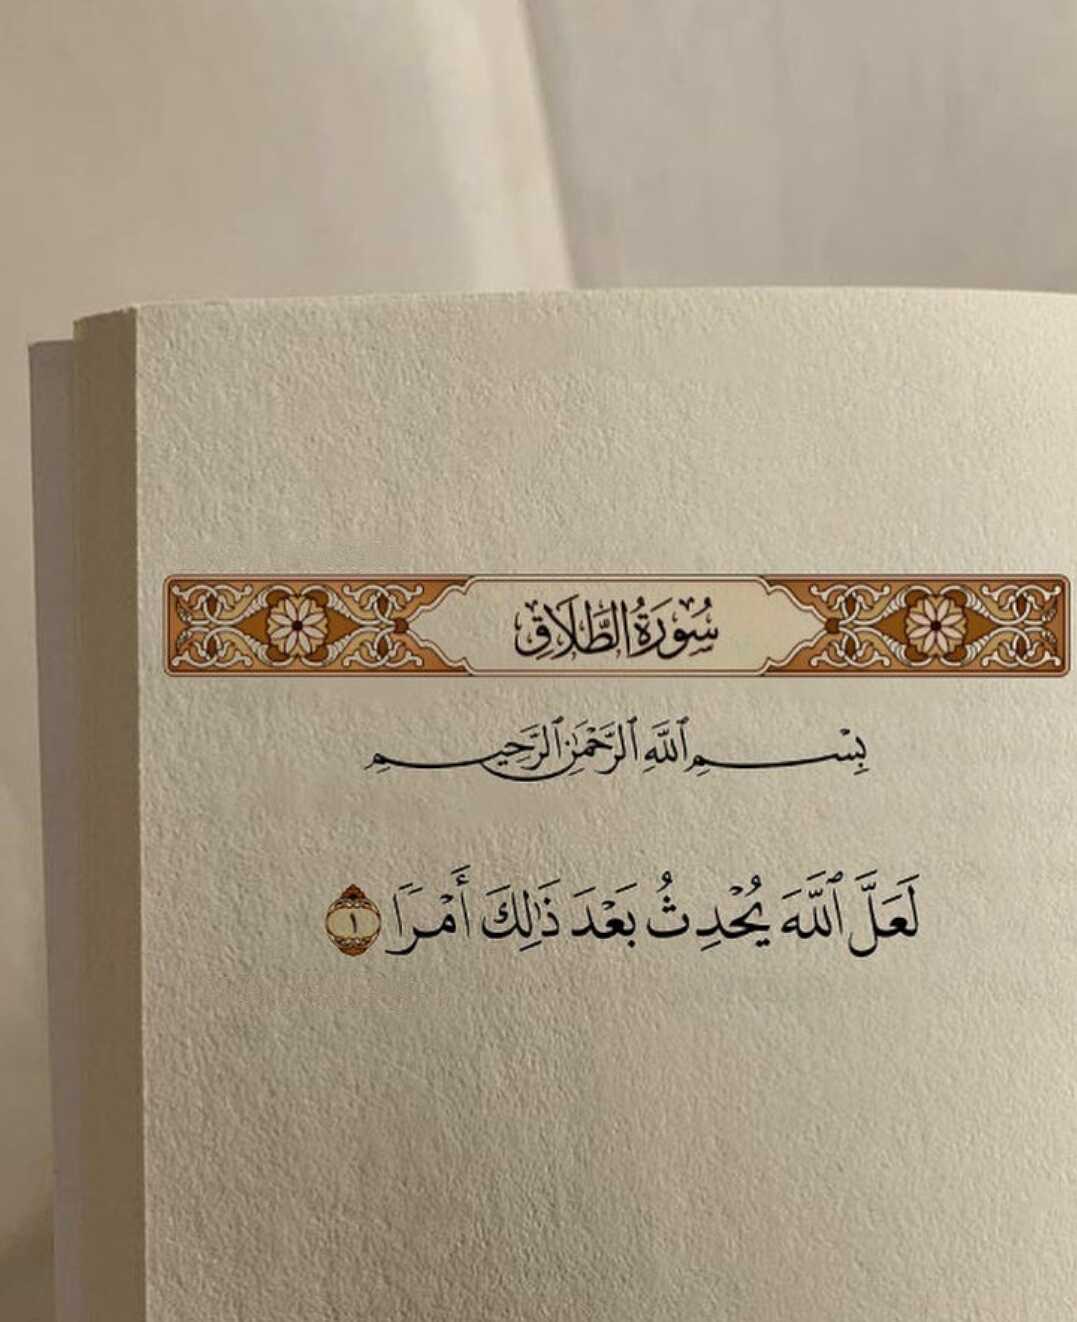 سُورَةُ الطَّلَاقِ
بِسْمِ ٱللَّهِ ٱلرَّحْمَٰنِ ٱلرَّحِيمِ
لَعَلَّ ٱللَّهَ يُحْدِثُ بَعْدَ ذَٰلِكَ أَمْرًا ١